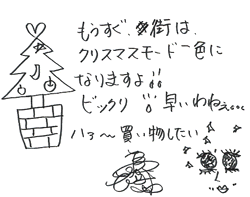 もうすぐ、街は、
クリスマスモード一色に
なりますよ!!
ビックリ!! 早いわねぇ...
ハァ〜買い物したい